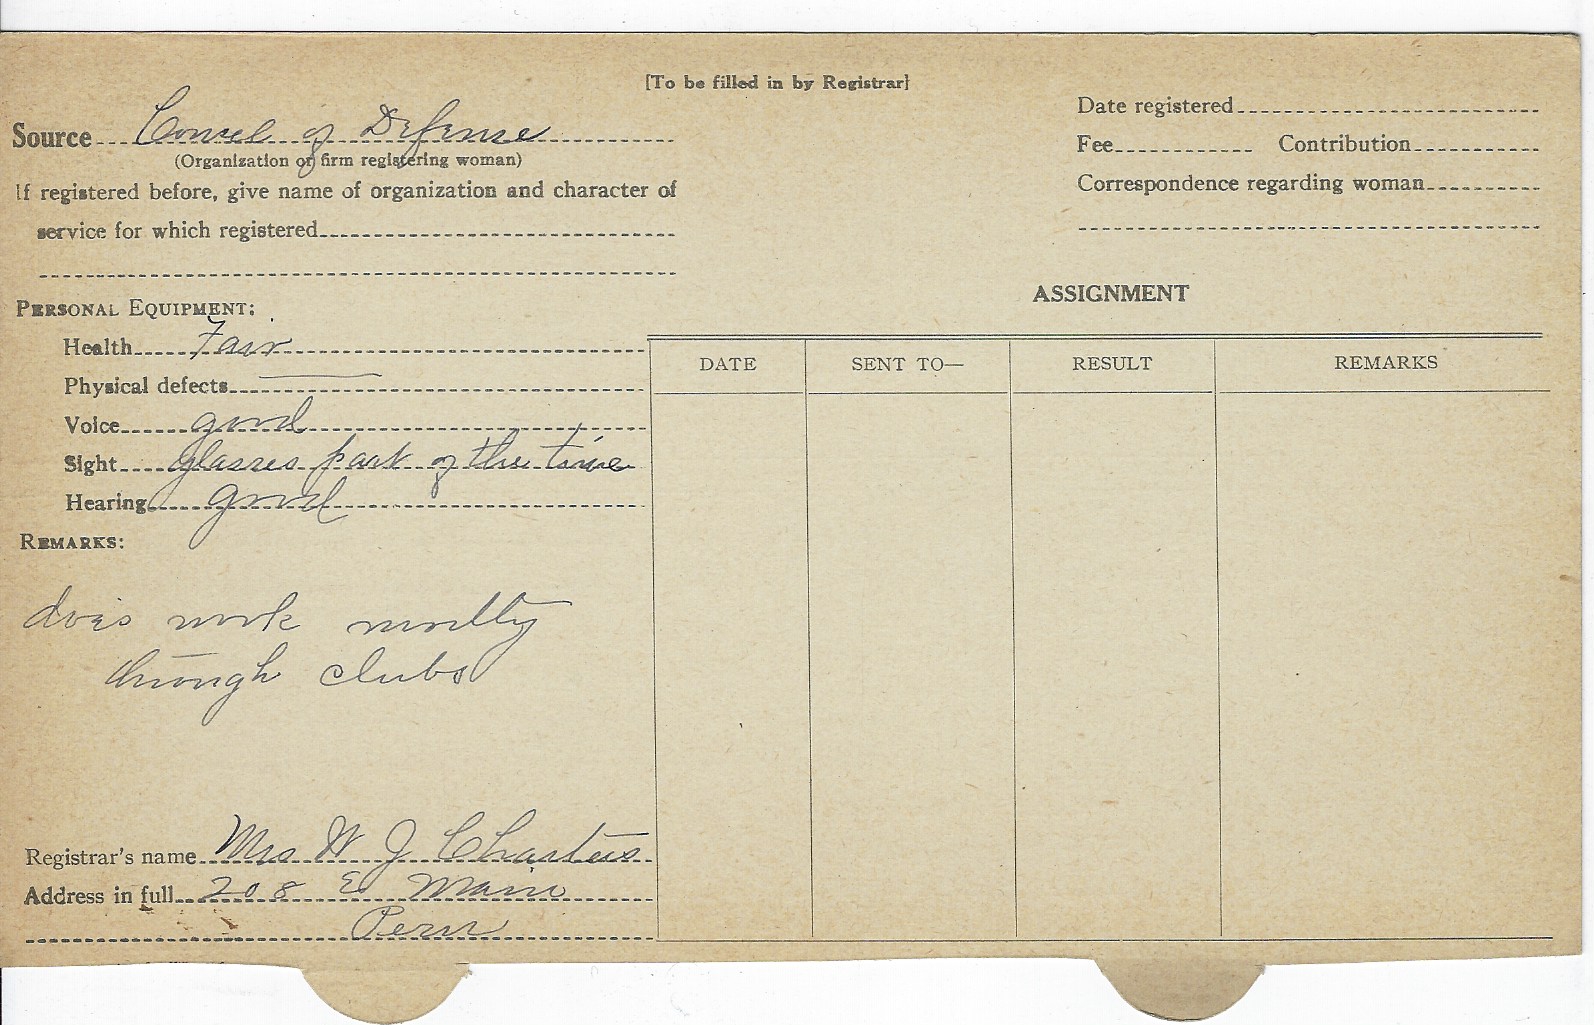 [To be filled in by Registrar]
Source Consel of Defense
(Organization or firm registering woman)
If registered before, give name of organization and character of
service for which registered
PERSONAL EQUIPMENT:
Health Fair
Physical defects
Voice good
Sight glasses part of the time
Hearing good
REMARKS:
does work mostly
through clubs
Registrar's name Mrs W J Charters
Address in full 208 E Main
Peru
Date registered
Fee Contribution
Correspondence regarding woman
ASSIGNMENT
DATE SENT TO— RESULT REMARKS